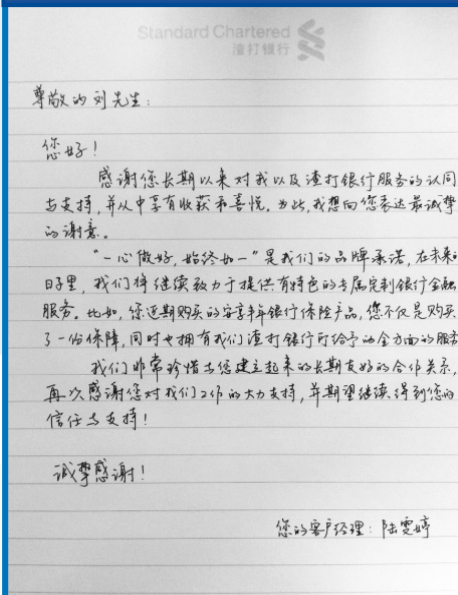 Standard Chartered
渣打银行
尊敬的刘先生：
您好！
感谢您长期以来对我以及渣打银行服务的认同
与支持，并从中享有收获和喜悦。为此，我想向您表达最诚挚
的谢意。
“一心做好，始终如一”是我们的品牌承诺，在未来的
日子里，我们将继续致力于提供有特色的专属定制银行金融
服务。比如，您近期购买的安享丰年银行保险产品，您不仅是购买
了一份保障，同时也拥有我们渣打银行所给予的全方面的服务
我们非常珍惜与您建立起来的长期友好的合作关系，
再次感谢您对我们工作的大力支持，并期望继续得到您的
信任与支持！
诚挚感谢！
您的客户经理：陆雯婷